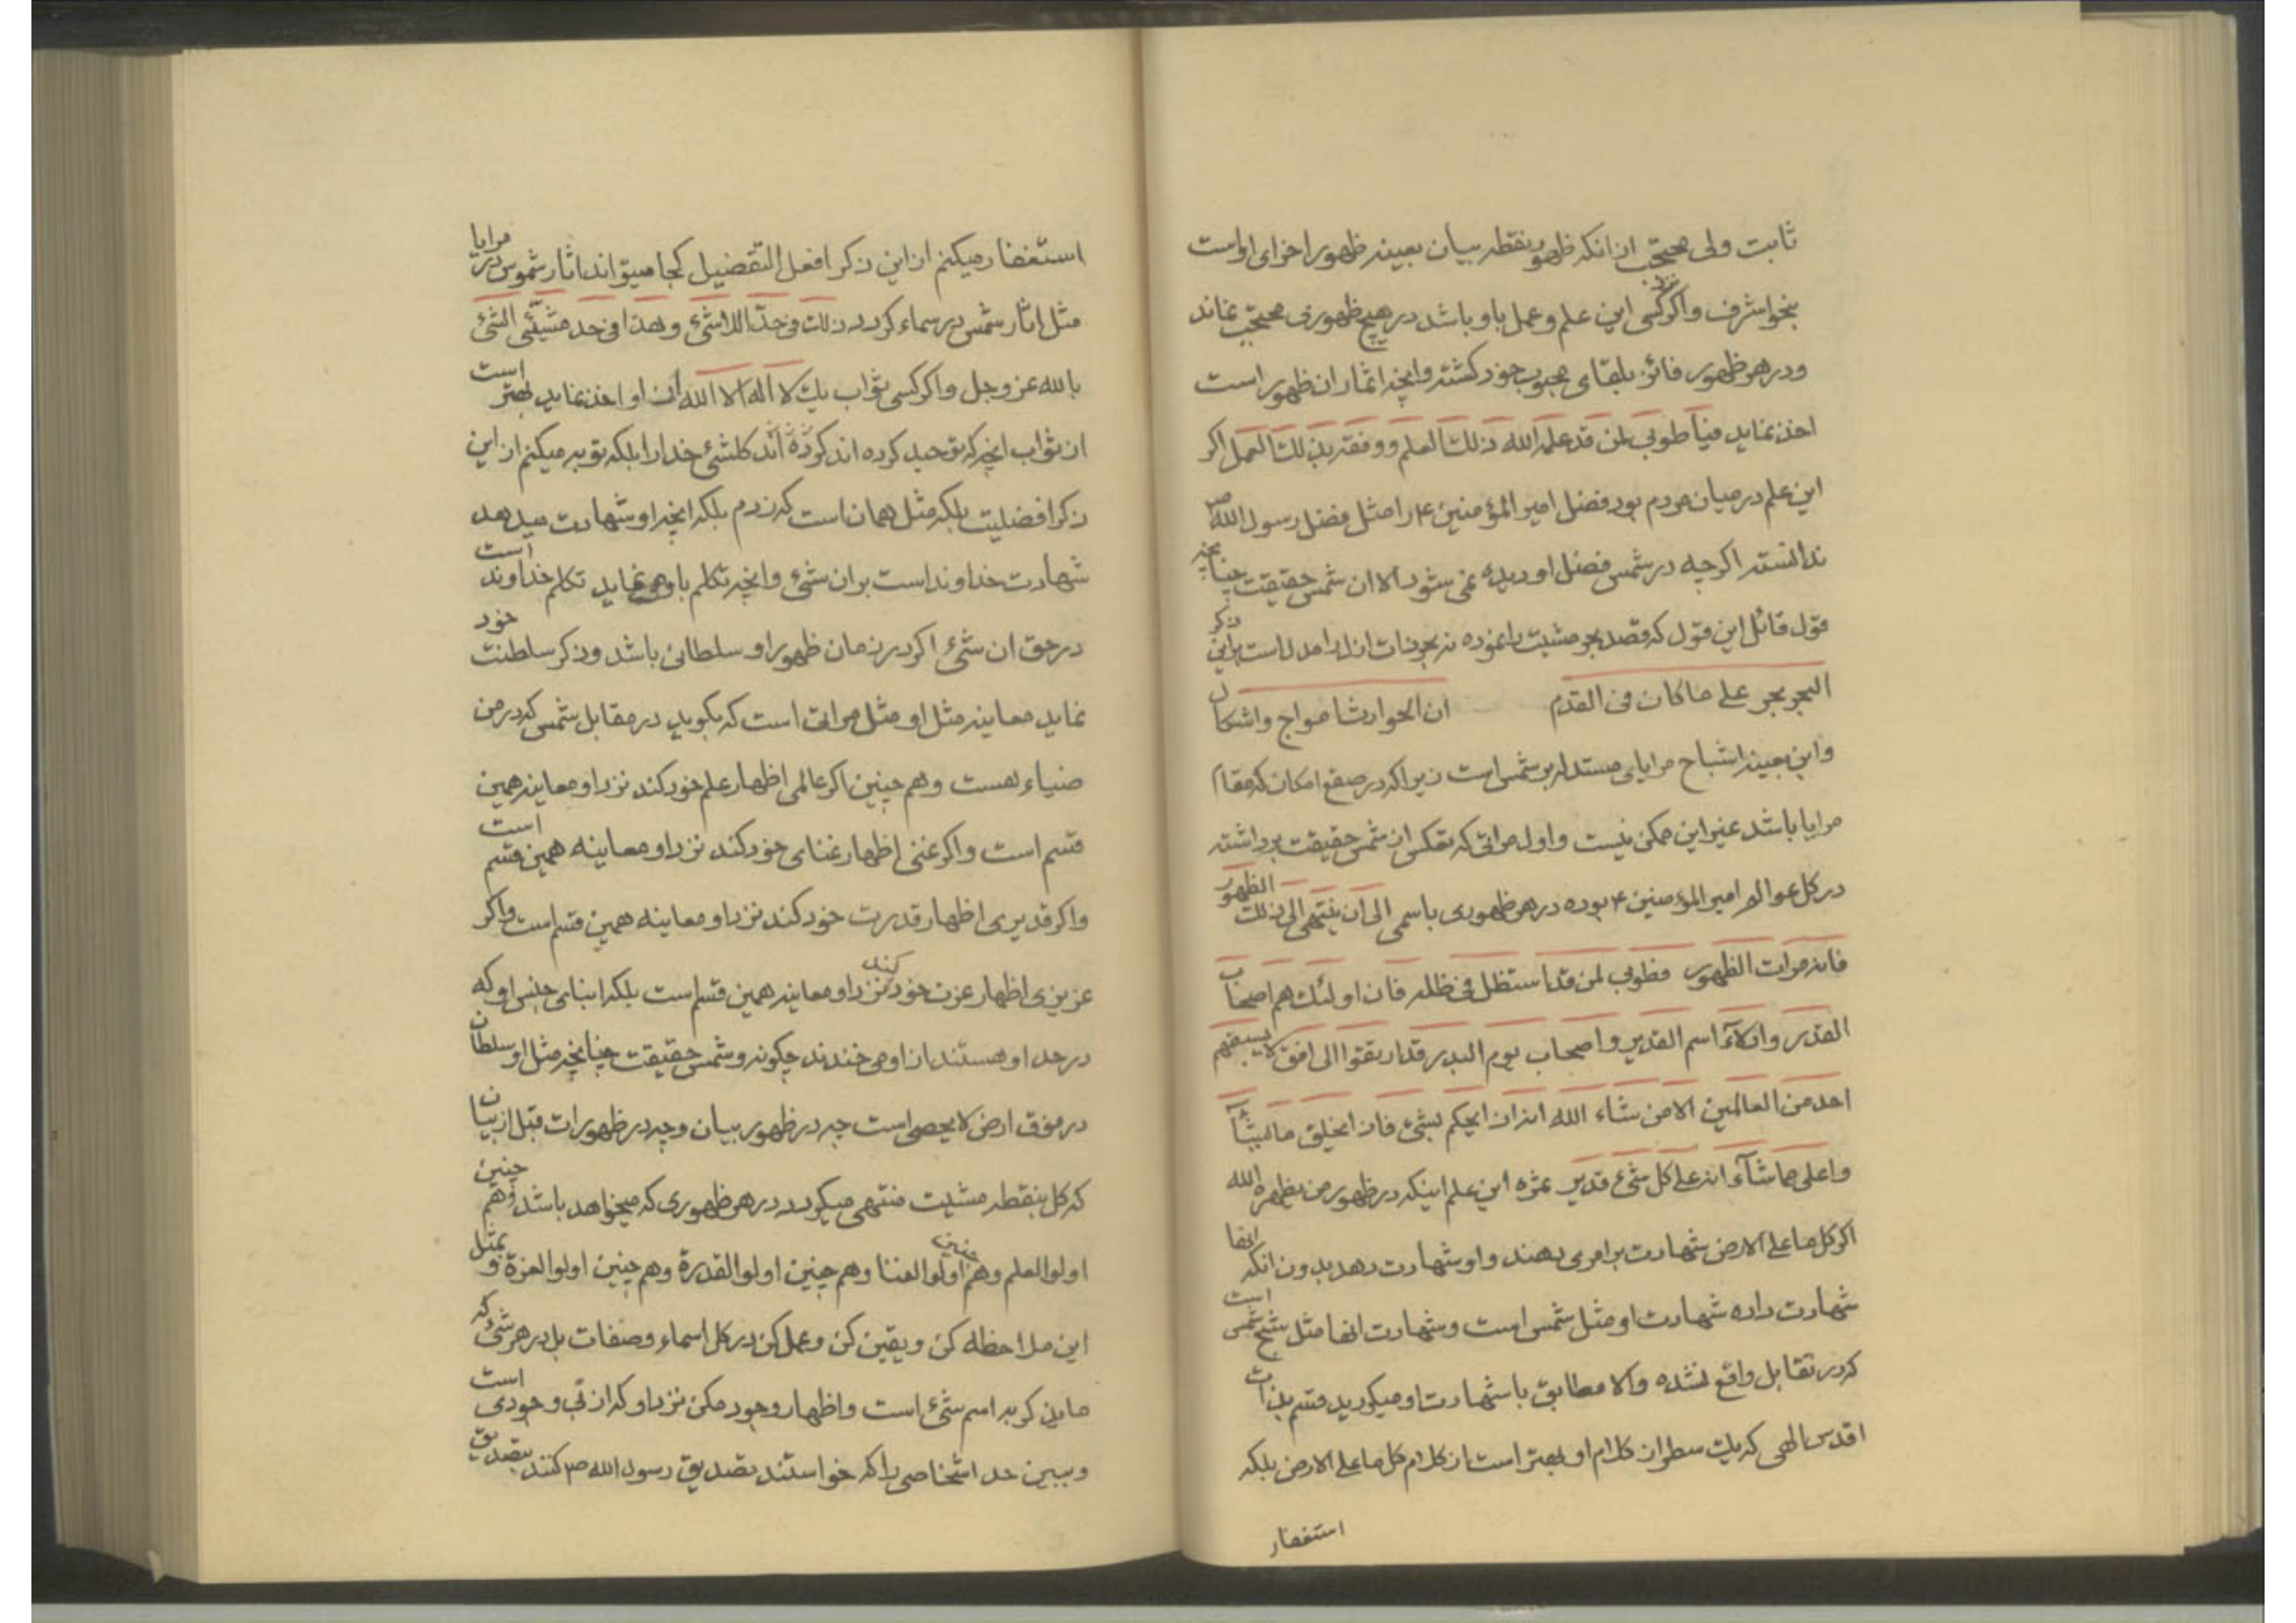 ثابت ولی محتجب از انکه ظهور نقطه بیان بعینه ظهور اخرای او است
بنحو اشرف و اکر کسی این علم و عمل باو باشد در هیچ ظهوری محتجب نماند
و در هر ظهور فائز بلقای محبوب خود کشته و انچه اثمار ان ظهور است
اخذ نماید فیا طوبی لمن قد علمه الله ذلك العلم و وفقه بذلك العمل اکر
این علم در میان مردم بود فضل امیر المؤمنین ۴ را مثل فضل رسول الله ص
ندانسته اکرچه در شمس فضل او دیده نمی شود الا ان شمس حقیقت چنانچه
قول قائل این قول که قصد بحر مشیت را نموده نه بحر ذات ازل را مدل است براین ذکر
البحر بحر علی ماکان فی القدم ان الحوادث امواج و اشکال
و این بعینه اشباح مرایای مستدله بر شمس است زیرا که در صقع امکان که مقام
مرایا باشد غیر این ممکن نیست و اول مراتی که تعکس از شمس حقیقت برداشته
در کل عوالم امیر المؤمنین ۴ بوده در هر ظهوری باسمی الی ان ینتهی الی ذلك الظهور
فانه مرات الظهور فطوبی لمن قد استظل فی ظله فان اولئك هم اصحاب
القدر و ادلاء اسم القدیر و اصحاب یوم البدر قد ارتقوا الی افق لا یسبقهم
احد من العالمین الا من شاء الله انه ان الحکم لشئ فان الخلق ما یشآ
و اعلی ما شآء انه علی کل شئ قدیر ثمره این علم اینکه در ظهور من یظهره الله
اکر کل ما علی الارض شهادت بر امری دهند و او شهادت دهد بدون انکه انها
شهادت داده شهادت او مثل شمس است و شهادت انها مثل شبح شمس است
که در تقابل واقع نشده والا مطابق با شهادت او میکردید قسم بذات
اقدس الهی که یك سطر از کلام او بهتر است از کلام کل ما علی الارض بلکه
استغفار
استغفار میکنم از این ذکر افعل التفضیل کجا میتواند اثار شموس در مرایا
مثل اثار شمس در سماء کردد ذلك فی حد اللاشئ و هذا فی حد مشیئ الشئ
بالله عز وجل و اکر کسی ثواب یك لا اله الا الله از او اخذ نماید بهتر است
از ثواب انچه که توحید کرده اند کرده اند کلشئ خدا را بلکه توبه میکنم از این
ذکر افضلیت بلکه مثل همان است که زدم بلکه انچه او شهادت میدهد
شهادت خداوند است بر ان شئ و انچه تکلم باو نماید تکلم خداوند است
در حق ان شئ اکر در زمان ظهور او سلطانی باشد و ذکر سلطنت خود
نماید معاینه مثل او مثل مراتی است که بکوید در مقابل شمس که در من
ضیاء هست و هم چنین اکر عالمی اظهار علم خود کند نزد او معاینه همین
قسم است و اکر غنی اظهار غنای خود کند نزد او معاینه همین قسم است
و اکر قدیری اظهار قدرت خود کند نزد او معاینه همین قسم است و اکر
عزیزی اظهار عزت خود کند نزد او معاینه همین قسم است بلکه ابنای جنس او که
در حد او هستند از او می خندند چکونه و شمس حقیقت چنانچه مثل او سلطان
در فوق ارض لا یحصی است چه در ظهور بیان و چه در ظهورات قبل از بیان
که کل بنقطه مشیت منتهی میکردد در هر ظهوری که میخواهد باشد و هم چنین
اولوا العلم و هم چنین اولوا الغنا و هم چنین اولوا القدرة و هم چنین اولوا العزة و بمثل
این ملاحظه کن و یقین کن و عمل کن در کل اسماء و صفات بل در هر شئ که
ماید کر به اسم شئ است و اظهار وجود ممکن نزد او که از کی وجودی است
و ببین حد اشخاصی را که خواستند تصدیق رسول الله ص کنند بتصدیق